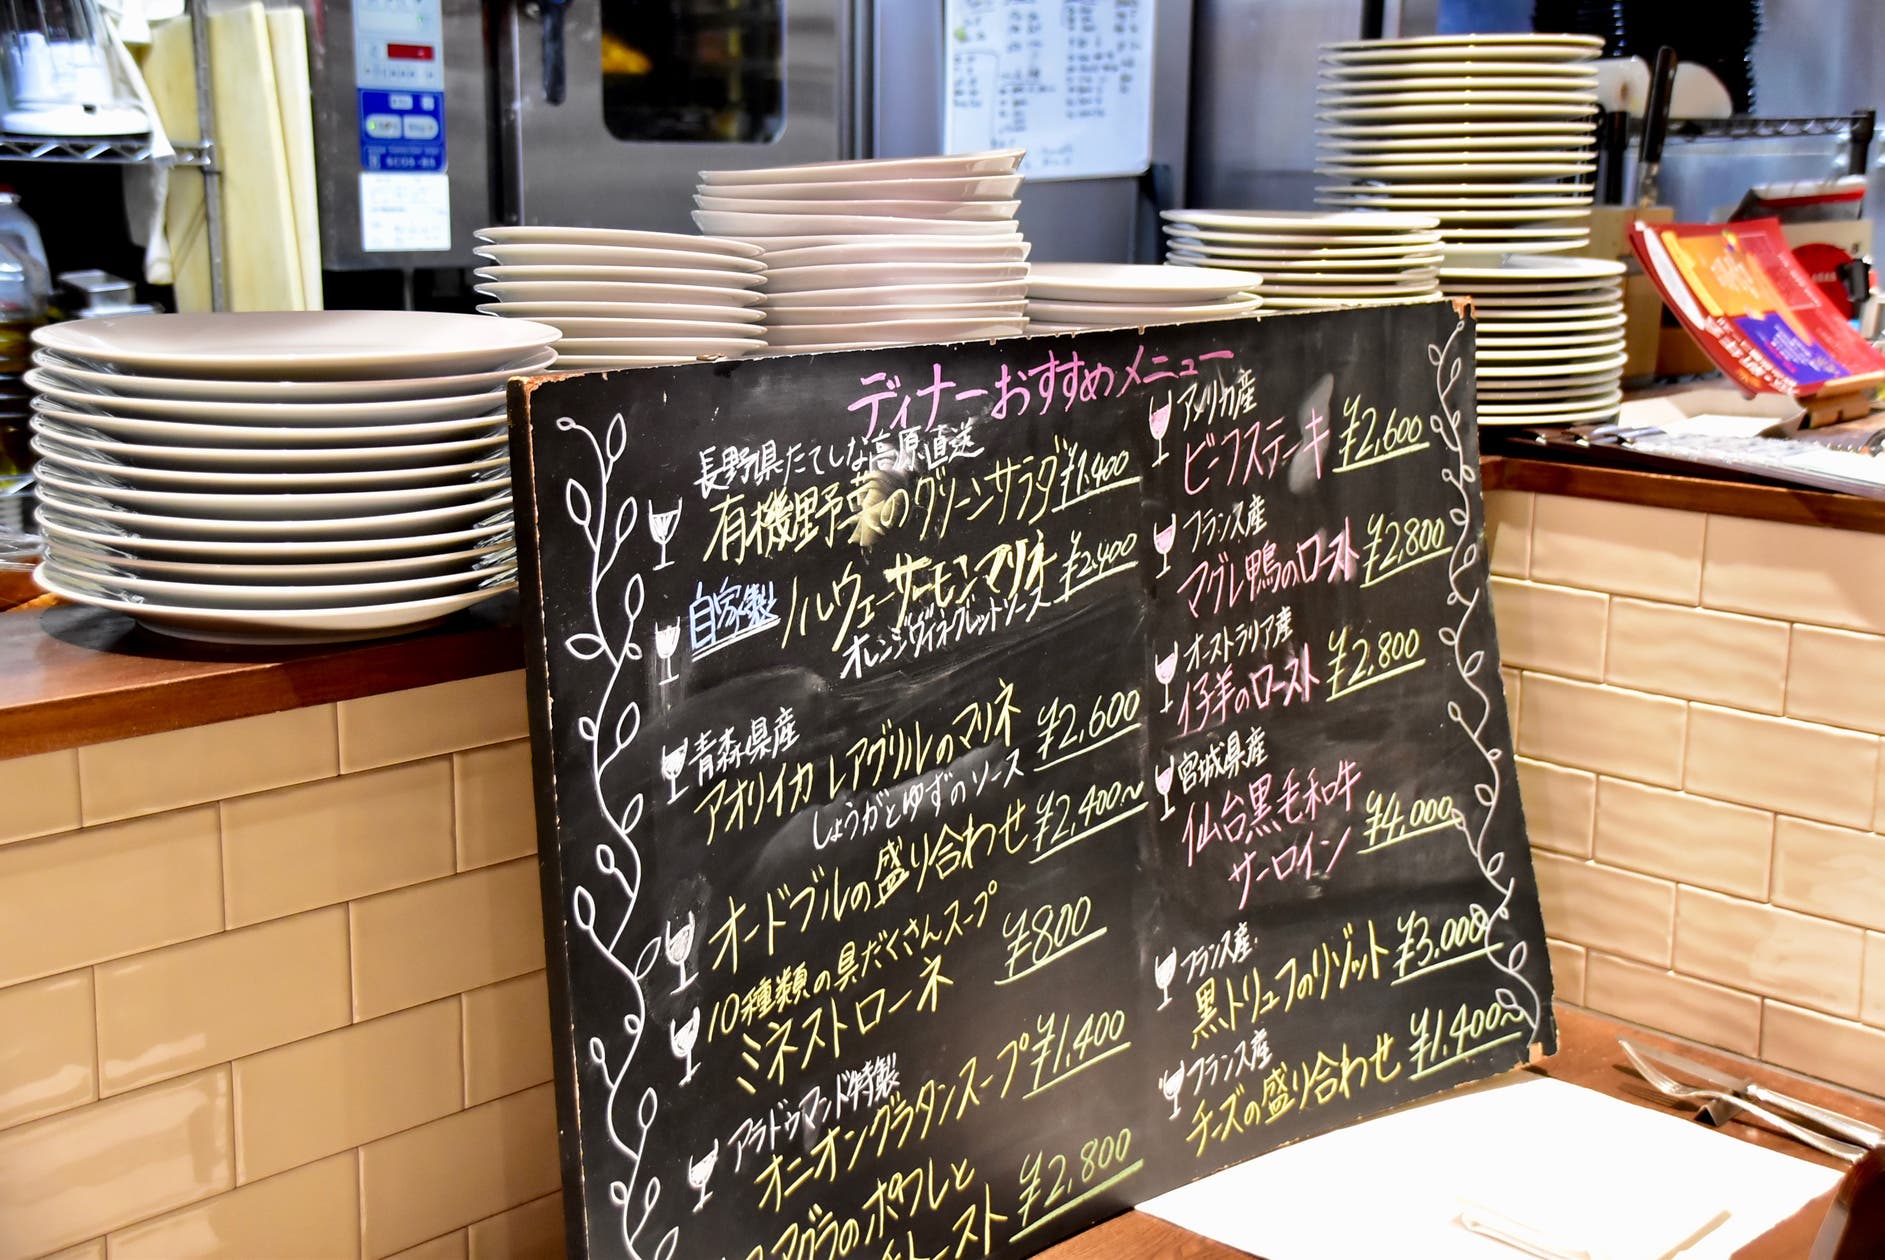 ディナーおすすめメニュー
長野県たてしな高原直送
有機野菜のグリーンサラダ ¥1,400
自家製 ノルウェーサーモンマリネ ¥2,400
オレンジヴィネグレットソース
青森県産
アオリイカ レアグリルのマリネ ¥2,600
しょうがとゆずのソース
オードブルの盛り合わせ ¥2,400~
10種類の具だくさんスープ
ミネストローネ ¥800
アラドゥマンド特製
オニオングラタンスープ ¥1,400
アグラのポワレと
トースト ¥2,800
アメリカ産
ビーフステーキ ¥2,600
フランス産
マグレ鴨のロースト ¥2,800
オーストラリア産
仔羊のロースト ¥2,800
宮城県産
仙台黒毛和牛
サーロイン ¥4,000
フランス産
黒トリュフのリゾット ¥3,000
フランス産
チーズの盛り合わせ ¥1,400~